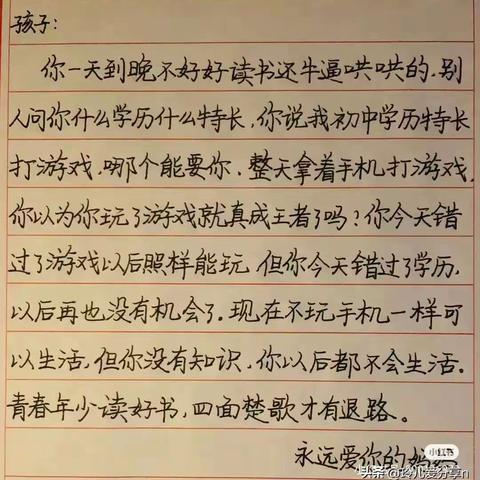 孩子:
你一天到晚不好好读书还牛逼哄哄的.别
人问你什么学历什么特长,你说我初中学历特长
打游戏,哪个能要你,整天拿着手机打游戏,
你以为你玩了游戏就真成王者了吗?你今天错
过了游戏以后照样能玩,但你今天错过了学历,
以后再也没有机会了.现在不玩手机一样可
以生活,但你没有知识,你以后都不会生活。
青春年少读好书,四面楚歌才有退路。
永远爱你的妈妈
小红书
头条@玲儿爱分享n